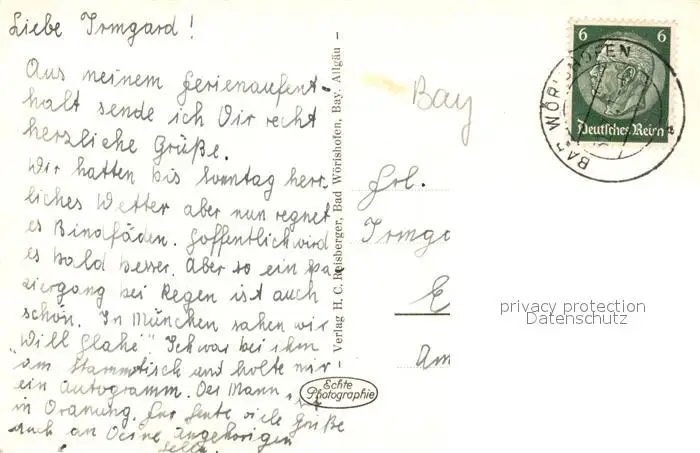 Liebe Irmgard!
Aus meinem Ferienaufent-
halt sende ich Dir recht
herzliche Grüße.
Wir hatten bis Sonntag herr-
liches Wetter aber nun regnet
es Bindfäden. Hoffentlich wird
es bald besser. Aber so ein Spa
ziergang bei Regen ist auch
schön. In München sahen wir
"Will Glahe". Ich war bei ihm
am Stammtisch und holte mir
ein Autogramm. Der Mann ist
in Ordnung. Für heute viele Grüße
auch an Deine Angehörigen
- Verlag H. C. Reisberger, Bad Wörishofen, Bay. Allgäu -
Echte
Photographie
Bay
Frl.
Irmga
E
Am
6 6
Deutsches Reich
BAD WÖRISHOFEN
privacy protection
Datenschutz